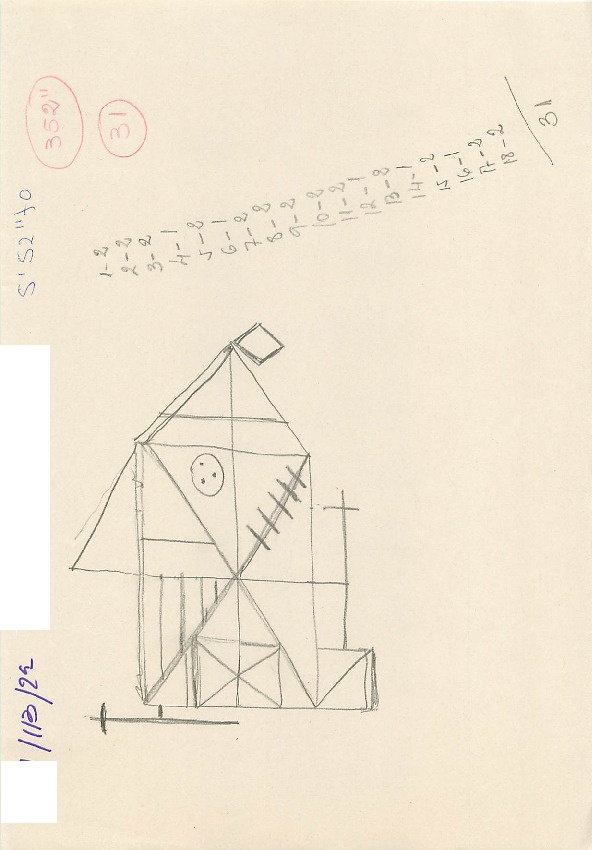 5'52"70
352"
31
1-2
2-2
3-2
4-1
5-2
6-1
7-2
8-2
9-2
10-2
11-2
12-1
13-2
14-1
15-2
16-1
17-2
18-2
31